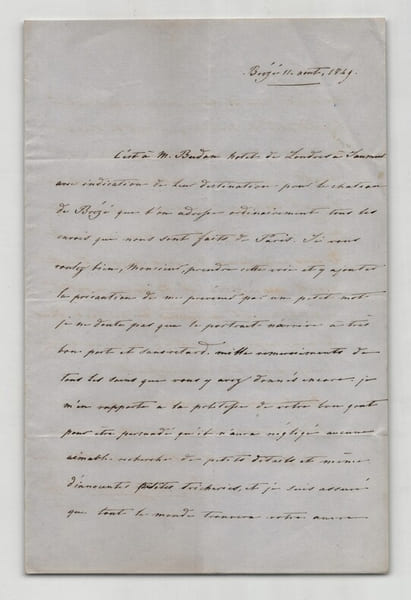 Brézé 11. aout, 1849.
C'est à M. Budan hotel de Londres à Saumur
avec indication de leur destination pour le chateau
de Brézé que l'on adresse ordinairement tous les
envois qui nous sont faits de Paris. Si vous
voulez bien, Monsieur, prendre cette voie et y ajouter
la précaution de me prévenir par un petit mot
je ne doute pas que le portrait n'arrive à très
bon port et sans retard. mille remerciments de
tous les soins que vous y avez donnés encore. je
m'en rapporte a la politesse de votre bon gout
pour etre persuadé qu'il n'aura négligé aucune
aimable recherche de petits détails et même
d'innocentes petites tricheries, et je suis assuré
que tout le monde trouvera votre œuvre